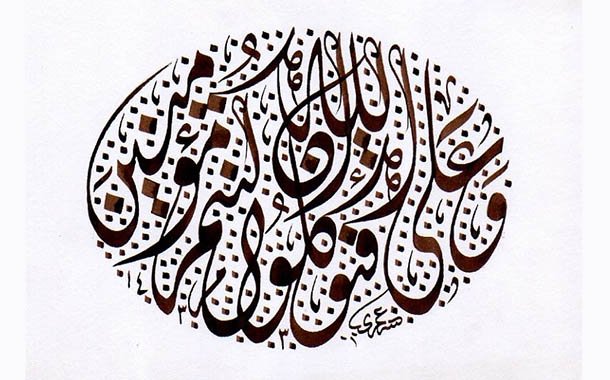 وعلى الله فتوكلوا إن كنتم مؤمنين
١٤٣٣